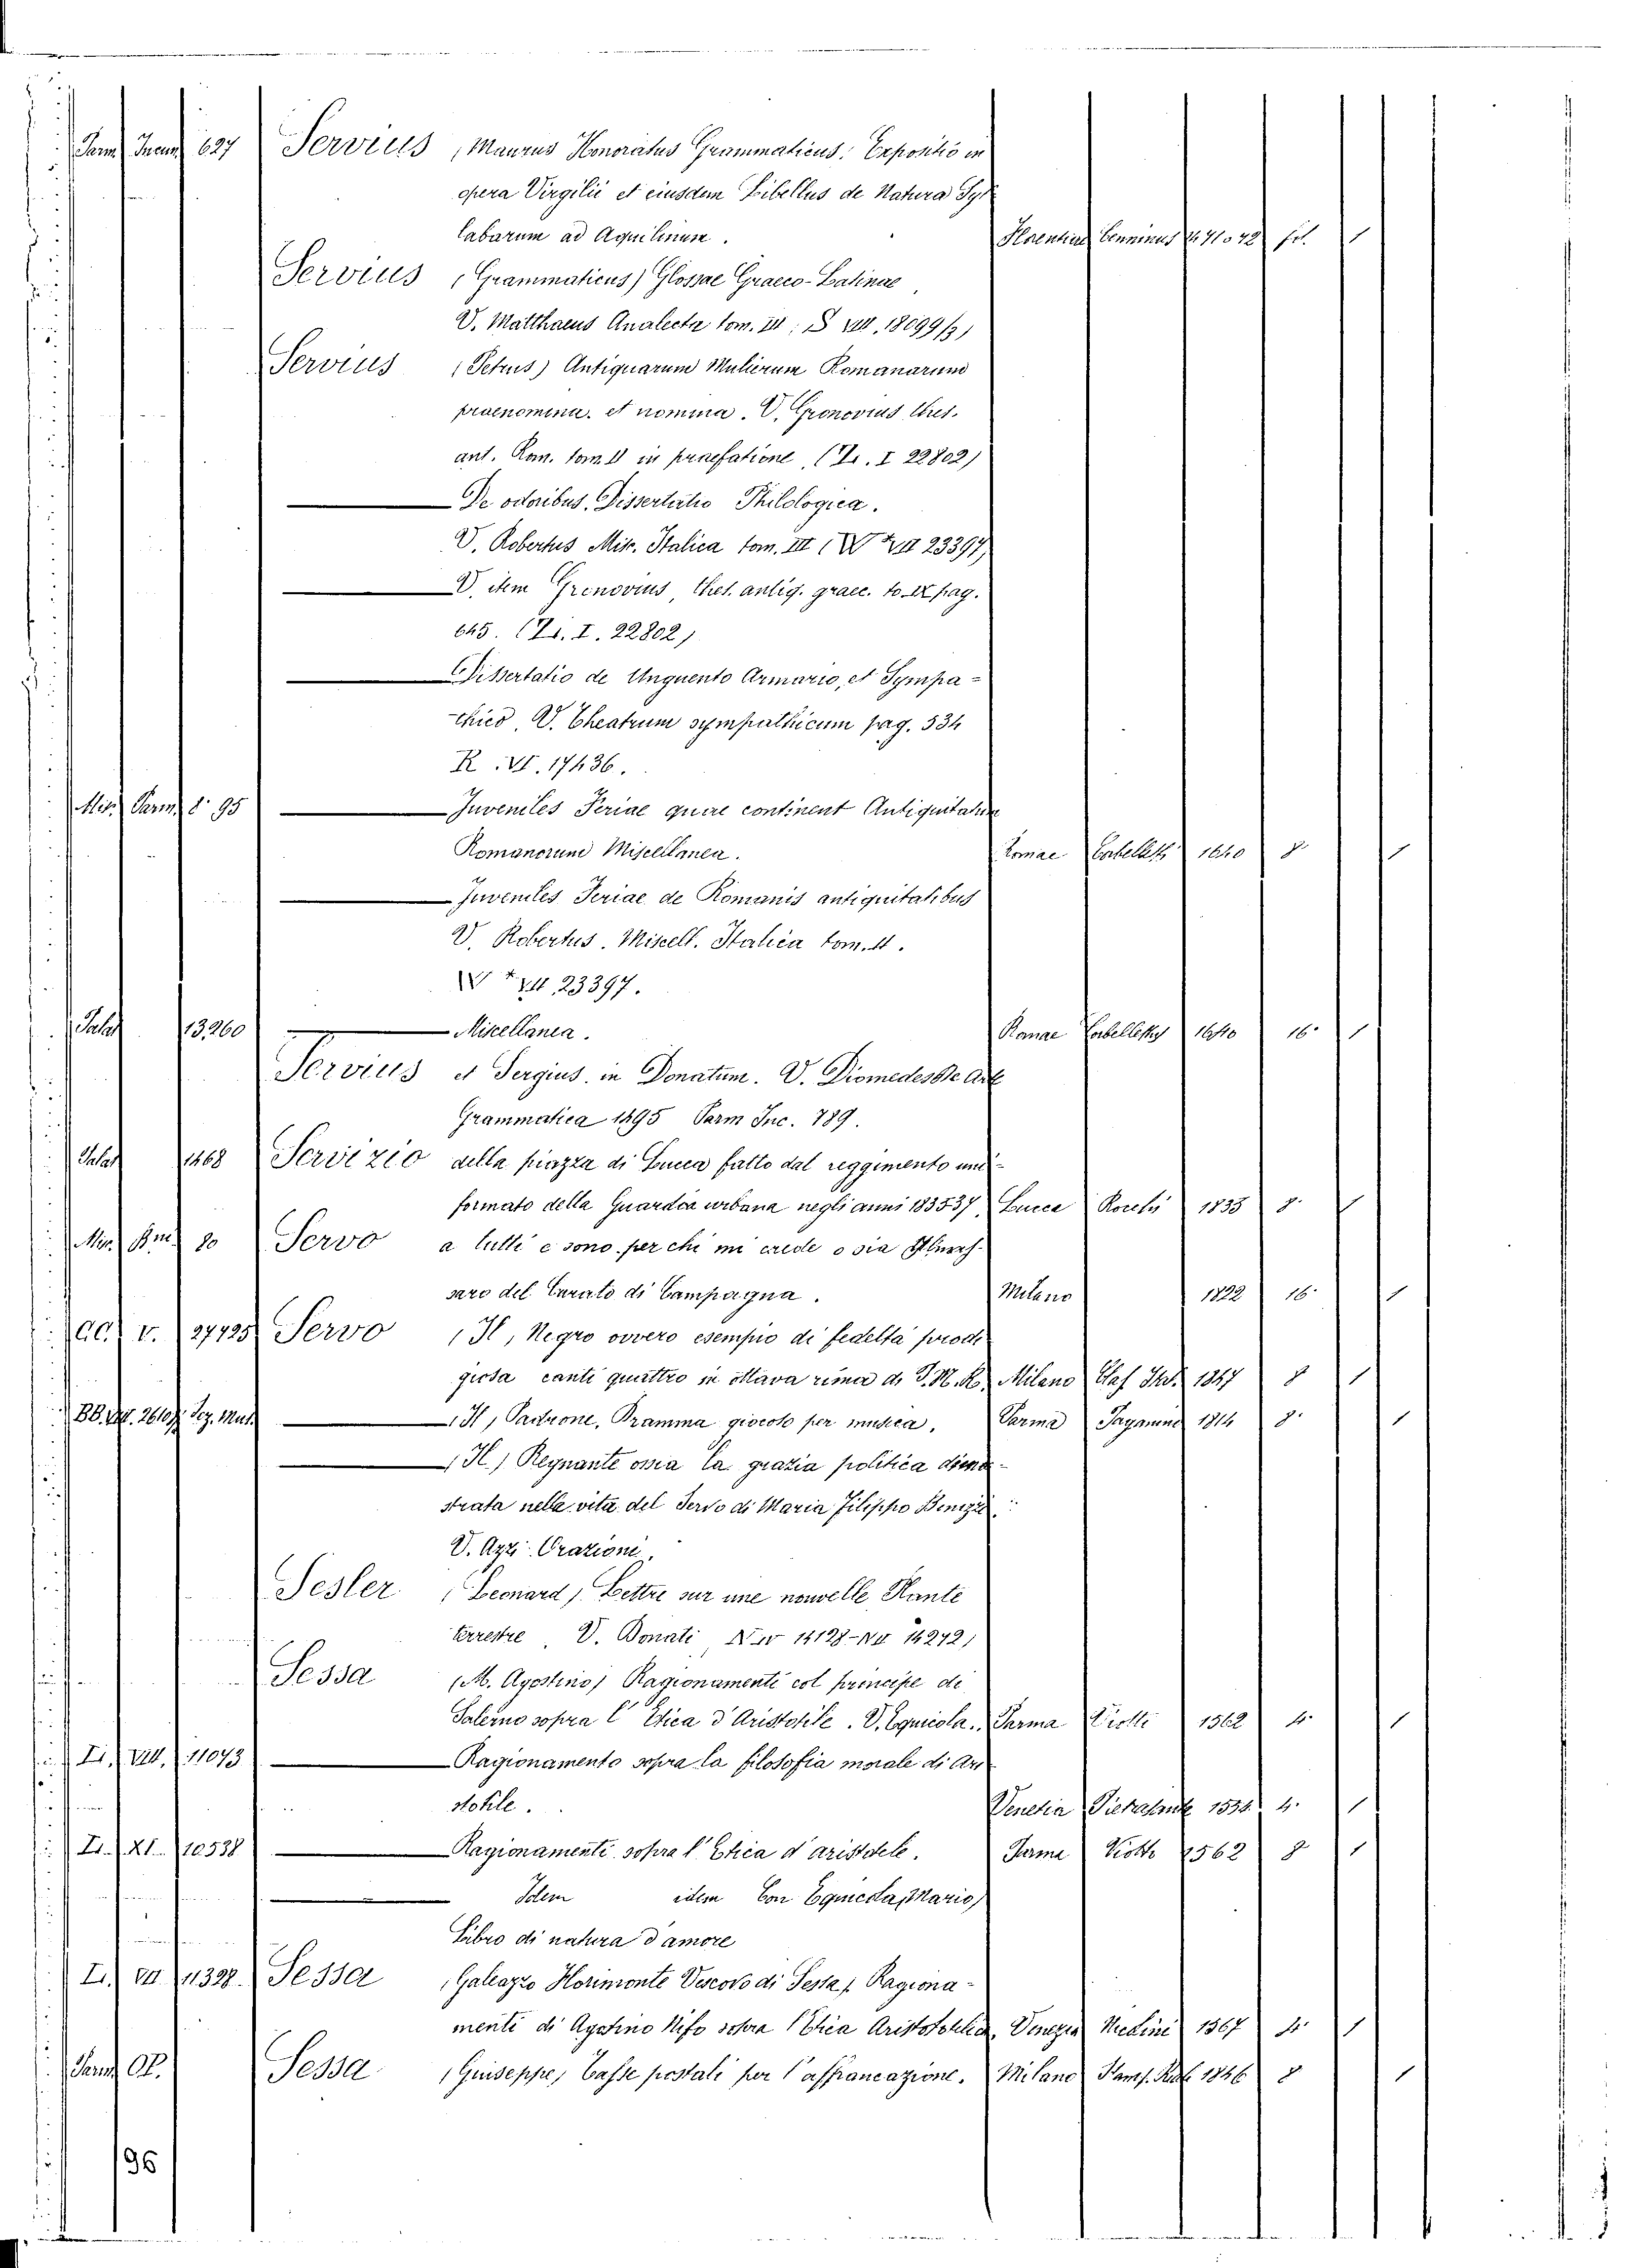 Parm Incun 627 Servius (Maurus Honoratus Grammaticus. Expositio in
opera Virgilii et eiusdem Libellus de Natura Syl
labarum ad Aquilinum. Florentiae Cenninus 1471072 fol. 1
Servius (Grammaticus) Glossae Graeco-Latinae
V. Matthaeus Analecta tom. III; S VIII. 18099/3)
Servius (Petrus) Antiquarum Mulierum Romanarum
praenomina. et nomina. V. Gronovius Thes.
ant. Rom. tom. II in praefatione, (Z. I 22802)
De odoribus. Dissertatio Philologica.
V. Robertus Mis. Italica tom. III (W VII 23397)
V. item Gronovius, Thes. antiq. graec. to. IX pag.
645. (Z. I. 22802)
Dissertatio de Unguento Armario, et Sympa-
-thico. V. Theatrum sympathicum pag. 534
R. VI. 17436.
Mis. Parm. 8º 95 Juveniles Feriae quae continent Antiquitatum
Romanorum Miscellanea. Romae Corbelletti 1640 8º 1
Juveniles Feriae de Romanis antiquitatibus
V. Robertus. Miscell. Italica tom. II.
W VII 23397.
Palat 13,260 Miscellanea. Romae Corbelletty 1640 16º 1
Servius et Sergius in Donatum. V. Diomedes De Arte
Grammatica 1495 Parm Inc. 789.
Palat 1468 Servizio della piazza di Lucca fatto dal reggimento uni-
formato della Guardia urbana negli anni 183537 Lucca Rocchi 1835 8º 1
Mis. Pm. 80 Servo a tutti e sono per chi mi crede o sia
saro del Curato di Campagna. Milano 1822 16º 1
CC. V. 27725 Servo (Il, Negro ovvero esempio di fedeltà prodi
giosa canti quattro in ottava rima di T. M. R. Milano 1847 8 1
BB. 26107 Sez. Mus. (Il, Padrone, Dramma giocoso per musica. Parma Paganino 1814 8º 1
(Il) Regnante ossia la grazia politica dimo-
strata nella vita del Servo di Maria Filippo Benizii
V. Azzi Orazioni.
Sesler (Leonard) Lettre sur une nouvelle Plante
terrestre V. Donati 14128 - 14272)
Sessa (M. Agostino) Ragionamenti col principe di
Salerno sopra l'Etica d'Aristotile. V. Equicola. Parma Viotti 1562 4º 1
Z. VIII. 11073 Ragionamento sopra la filosofia morale di Ari
stotile. Venetia 1538. 4. 1
Z. XI. 10538 Ragionamenti sopra l'Etica d'aristotele. Parma Viotto 1562 8 1
Idem idem Con Equicola, (Mario)
Libro di natura d'amore
Z. VII 11328. Sessa (Galeazzo Horimonte Vescovo di Sessa) Ragiona-
menti di Agostino Nifo sopra l'Etica Aristotelica. Venezia 1567 4º 1
Parm CP. Sessa (Guiseppe) Tasse postali per l'affrancazione. Milano Stamp. 1846 8 1
196